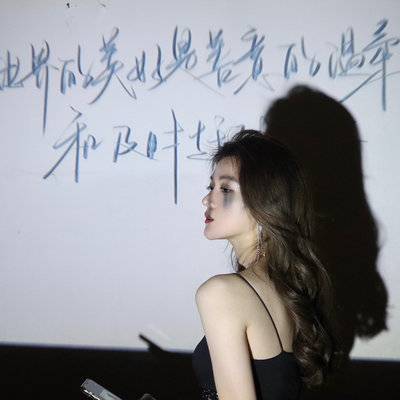 世界的美好是善意的温
和及时